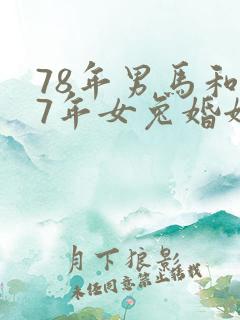 78年男馬和
7年女兔婚姻
月下狼影
未经同意禁止转载